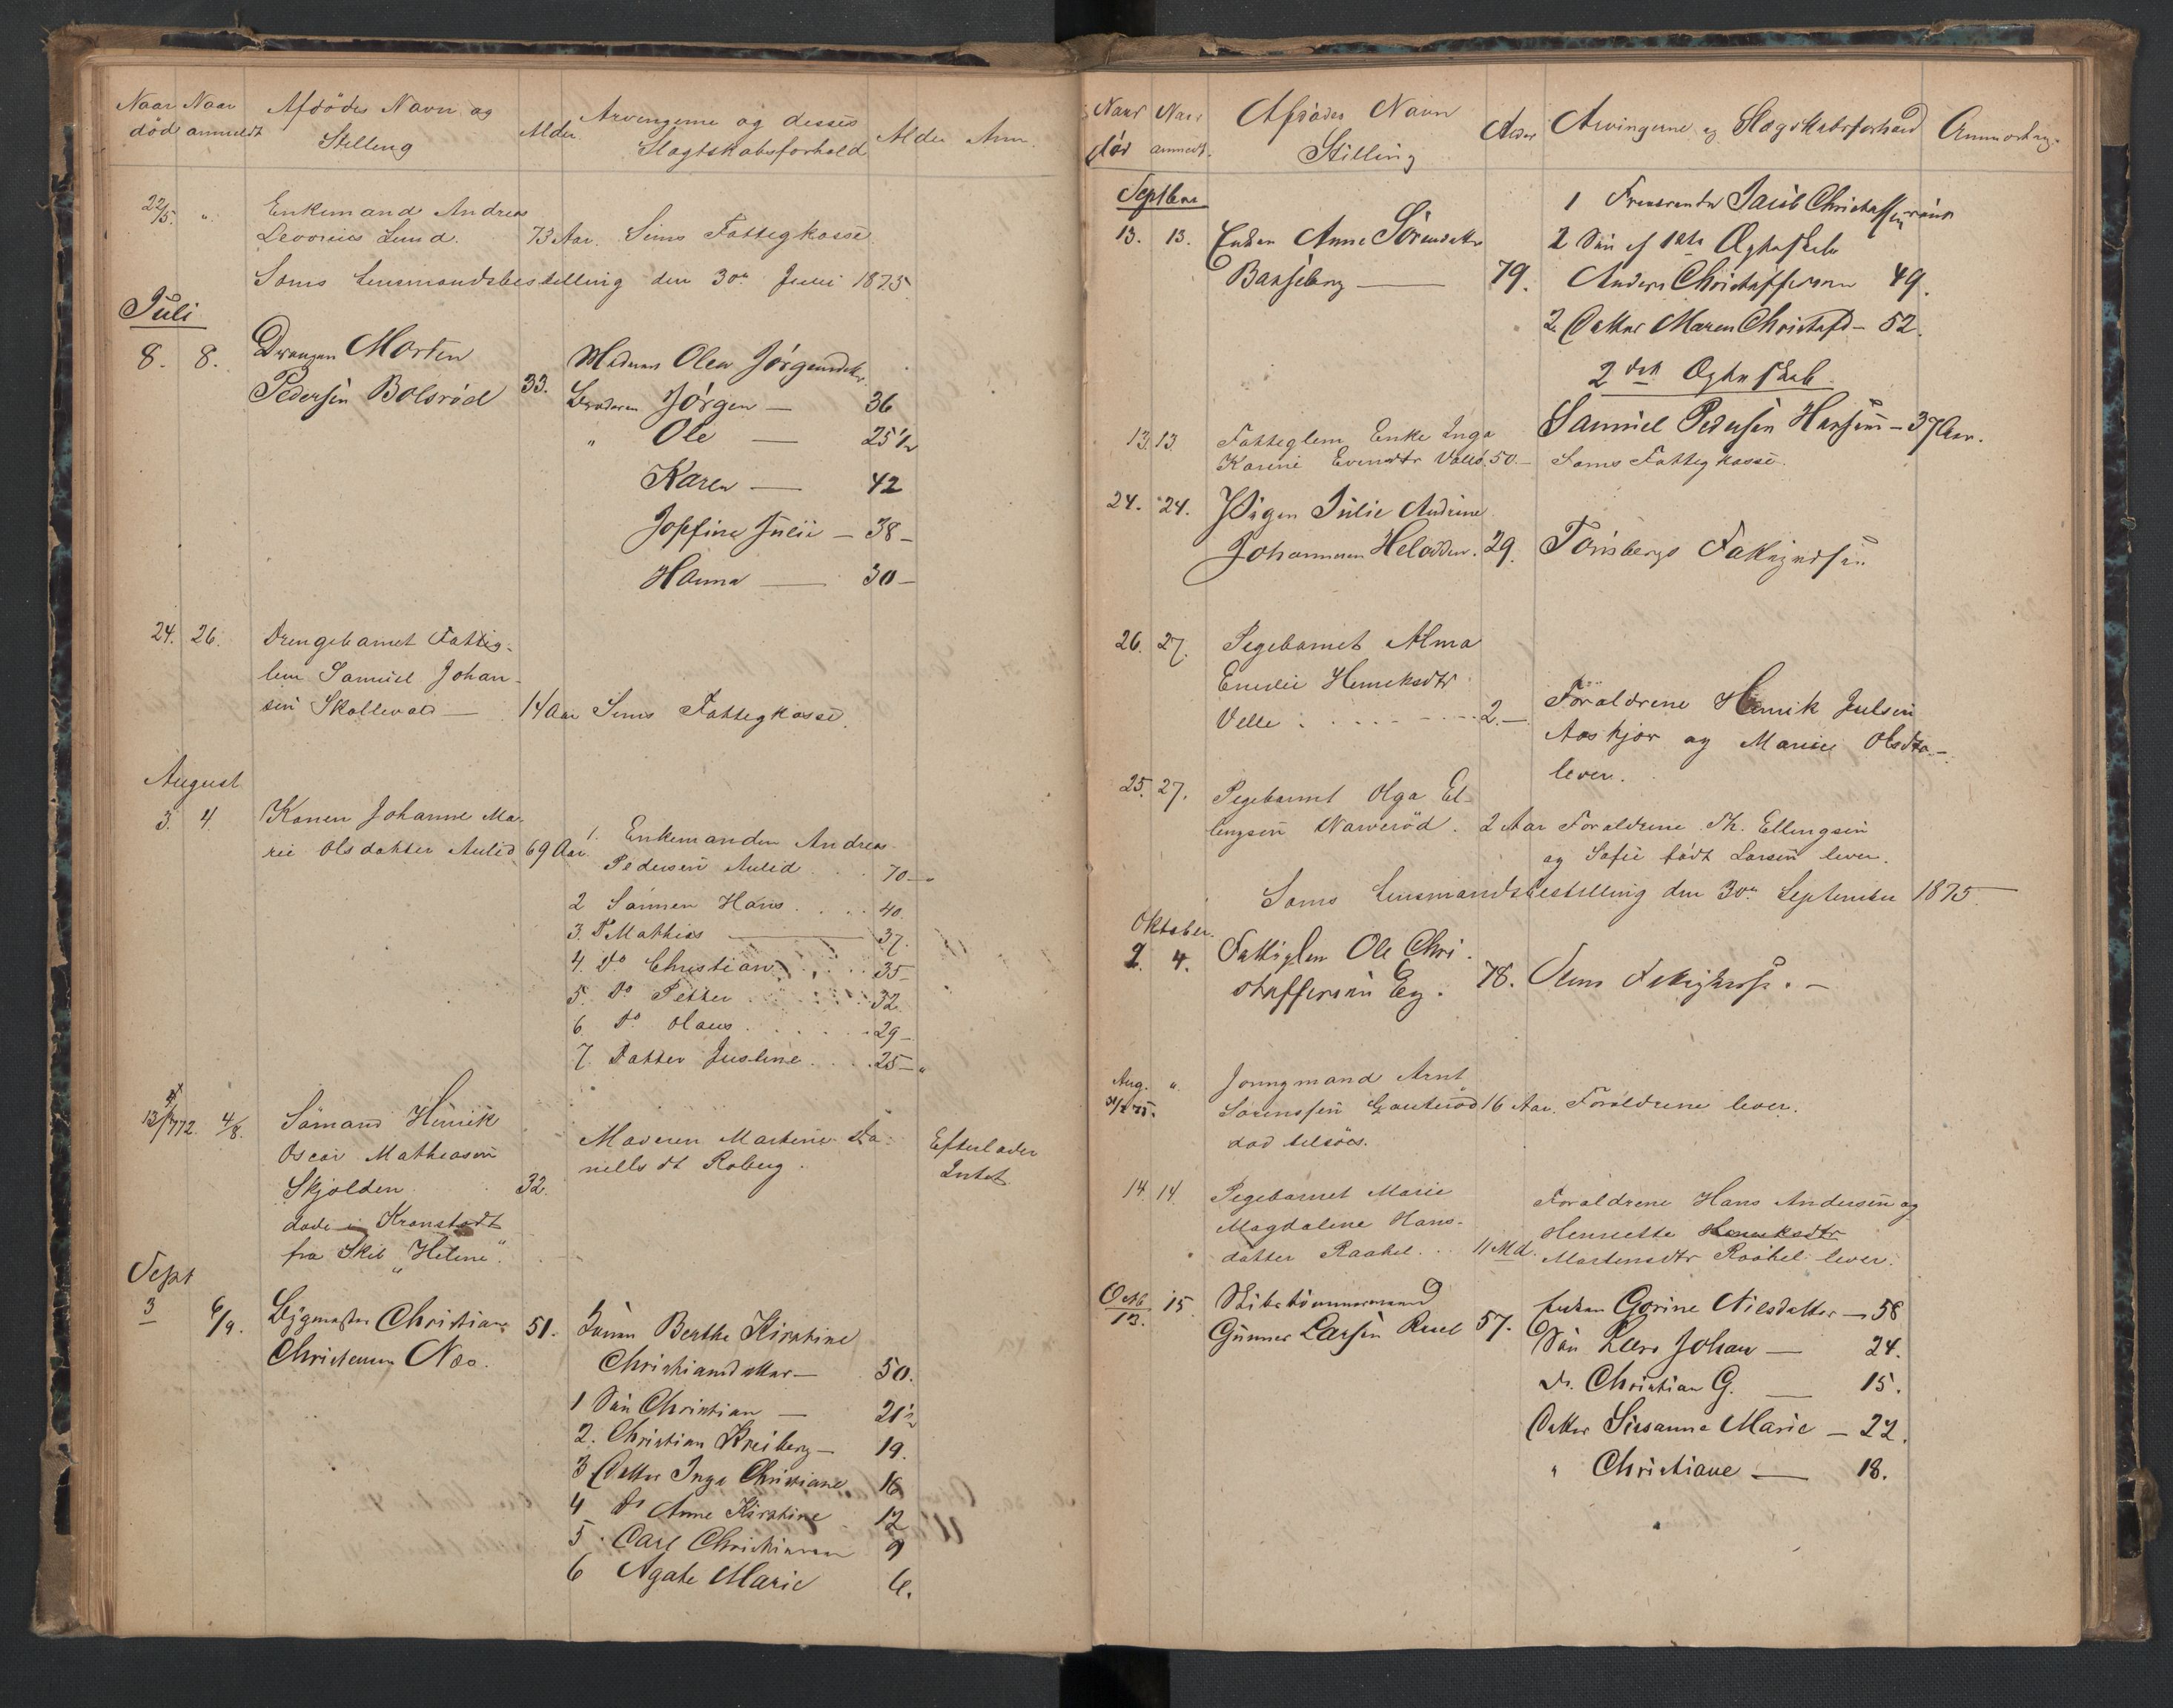 Naar Naar Afdödes Navn og Alder Arvingerne og disses Alder Anm.
död anmeldt Stilling Slagtskabsforhold
22/5. " Enkemand Andreas
Levorius Lund. 73 Aar. Sems Fattigkasse
Sems Lensmandsbestilling den 30te Juni 1875.
Juli
8. 8. Drengen Morten Moderen Olea Jörgensdtr.
Pedersen Bolsröd 33. Broderen Jörgen — 36
" Ole — 25 1/2
Karen — 42
Josefine Julie — 38 —
Hanna — 30 —
24. 26. Drengebarnet Fattig-
lem Samuel Johan-
sen Skallevold — 14 Aar Sems Fattigkasse.
August
3. 4. Konen Johanne Ma- 1. Enkemanden Andreas
rie Olsdatter Aulid 69 Aar. Pedersen Aulid . . 70 — "
2 Sönnen Hans . . . 40.
3. Do Mathias — 37.
4. Do Christian . . . 35 —
5. Do Petter . . . 32
6. Do Olaus . . . 29 —
7. Datter Justine . . . 25 — "
13/ 772. 4/8. Sömand Henrik
Oscar Mathiasen Moderen Martine Da- Efterlader
Skjolden 32. nielsdt Roberg. Intet.
döde i Kronstadt
fra Skib "Helene".
Sept
3 6/9. Bygmester Christian 51. Konen Berthe Kirstine
Christensen Næs. Christiansdatter — 50.
1 Sön Christian — 21 1/2
2. Christian Kreiberg — 19.
3 Datter Inga Christiane 16
4 do Anne Kirstine 12
5 . Carl Christiansen 9
6 Agate Marie 6.
Naar Naar Afdödes Navn Alder Arvingerne og Slægtskabsforhold Anmærkng.
död anmeldt. Stilling
Septbr 1 Jacob Christoffersen
13. 13. Enken Anne Sörensdatter 2 Sön af 1ste Ægteskab
Barkeberg — 79. Anders Christoffersen 49.
2 Datter Maren Christofd — 52.
2det Ægteskab
13. 13. Fattiglem Enke Inga Samuel Pedersen Hansen — 37 Aar.
Karine Evensdtr Vallö. 50 — Sems Fattigkasse.
24. 24. Pigen Julie Andrine
Johannesen Heladden. 29. Tönsbergs Fattigvæsen
26. 27. Pigebarnet Alma
Emilie Henriksdtr
Velle . . . 2. — Forældrene Henrik Julsen
Aaskjær og Marie Olsdtr —
lever.
25. 27. Pigebarnet Olga El-
lingsen Narveröd. 2 Aar Forældrene Th. Ellingsen
og Sofie födt Larsen lever.
Sems Lensmandsbestilling den 30te September 1875.
Oktober.
2. 4. Fattiglem Ole Chri-
stoffersen Eg. 78. Sems Fattigkasse. —
Aug. " Jonngmand Arnt
Sörenssen Gauteröd 16 Aar. Forældrene lever.
död tilsöes.
14. 14. Pigebarnet Marie Forældrene Hans Andersen og
Magdalene Hans- Henriette Henriksdtr
datter Raakel . . 11 Md. Martensdtr Raakel lever.
Octb 15 Skibstömmermand Enken Gorine Nilsdatter — 58
13. Gunner Larsen Ruel 57. Sön Lars Johan — 24.
do. Christian G. — 15.
Datter Susanne Marie — 22.
" Christiane — 18.